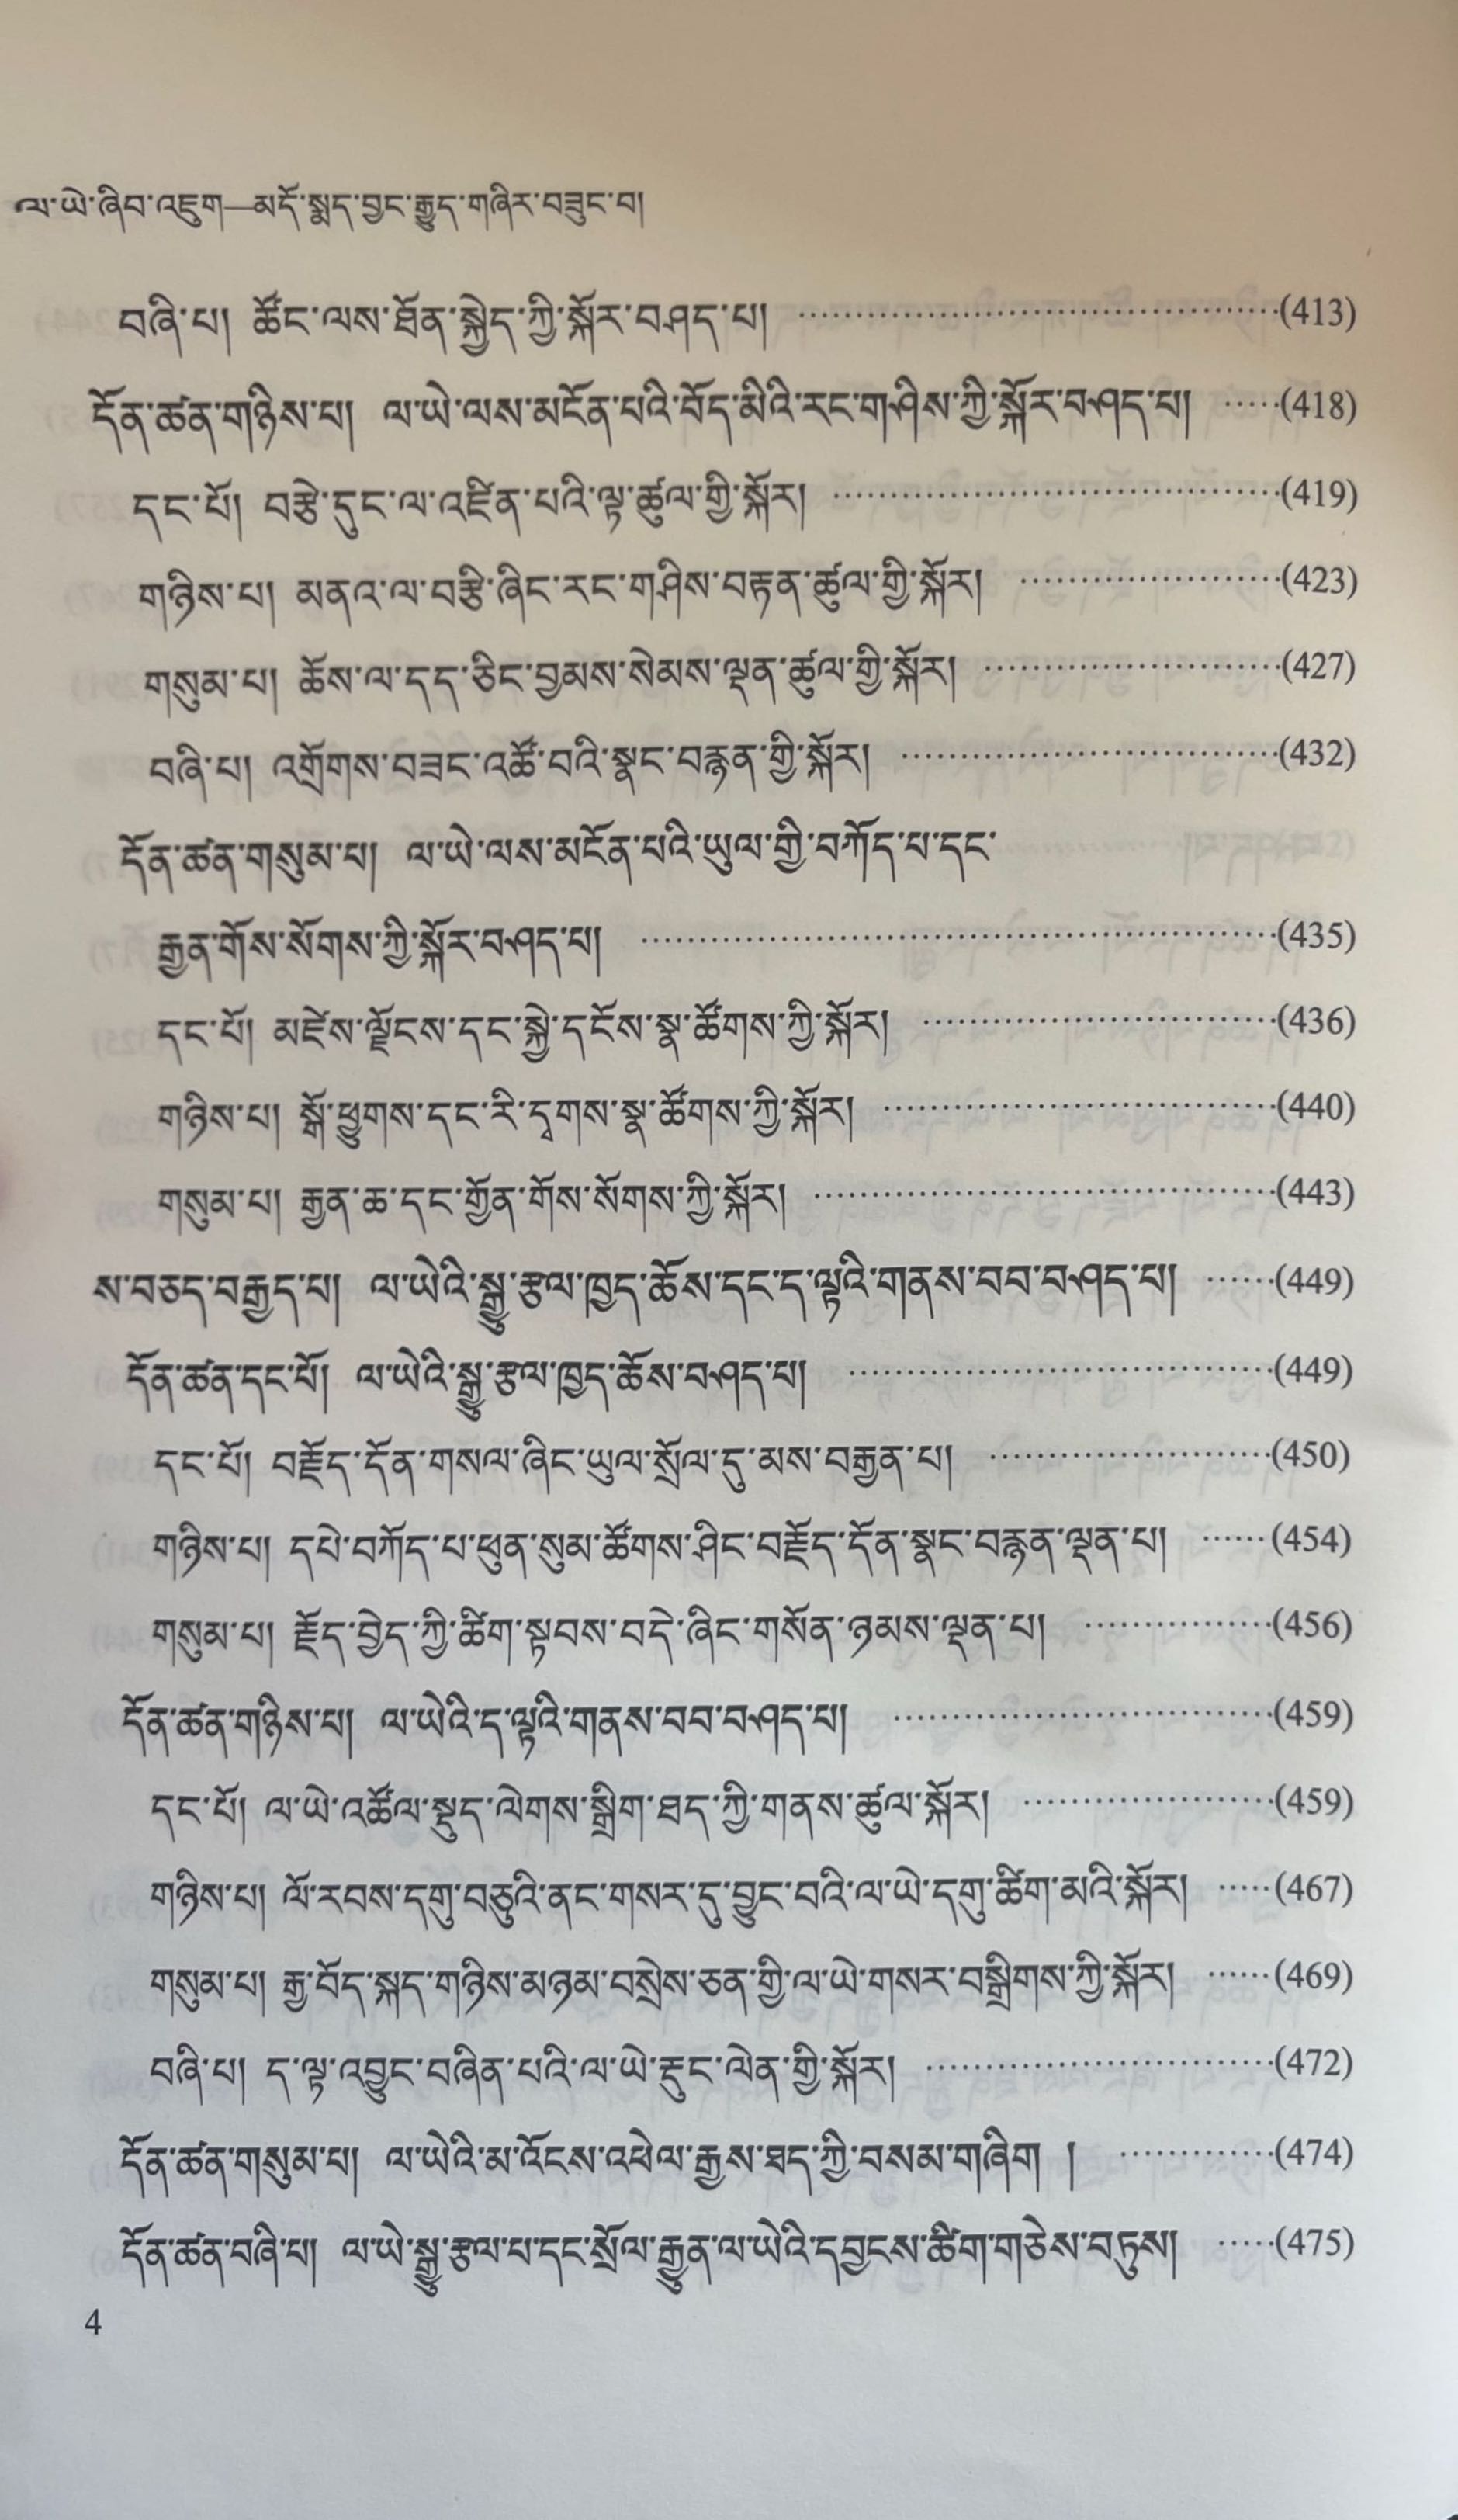 ལ་ཡེ་ཞིབ་འཇུག—མདོ་སྨད་བྱང་རྒྱུད་གཞིར་བཟུང་བ།
བཞི་པ། ཚོང་ལས་ཐོན་སྐྱེད་ཀྱི་སྐོར་བཤད་པ། ……………………………………(413)
དོན་ཚན་གཉིས་པ། ལ་ཡེ་ལས་མངོན་པའི་བོད་མིའི་རང་གཤིས་ཀྱི་སྐོར་བཤད་པ། ……(418)
དང་པོ། བརྩེ་དུང་ལ་འཛིན་པའི་ལྟ་ཚུལ་གྱི་སྐོར། ……………………………………(419)
གཉིས་པ། མནའ་ལ་བརྩི་ཞིང་རང་གཤིས་བརྟན་ཚུལ་གྱི་སྐོར། ……………………(423)
གསུམ་པ། ཆོས་ལ་དད་ཅིང་བྱམས་སེམས་ལྡན་ཚུལ་གྱི་སྐོར། ………………………(427)
བཞི་པ། འགྲོགས་བཟང་འཚོ་བའི་སྣང་བརྙན་གྱི་སྐོར། ………………………………(432)
དོན་ཚན་གསུམ་པ། ལ་ཡེ་ལས་མངོན་པའི་ཡུལ་གྱི་བཀོད་པ་དང་
རྒྱན་གོས་སོགས་ཀྱི་སྐོར་བཤད་པ། …………………………………………………(435)
དང་པོ། མཛེས་ལྗོངས་དང་སྐྱེ་དངོས་སྣ་ཚོགས་ཀྱི་སྐོར། ……………………………(436)
གཉིས་པ། སྒོ་ཕྱུགས་དང་རི་དྭགས་སྣ་ཚོགས་ཀྱི་སྐོར། ………………………………(440)
གསུམ་པ། རྒྱན་ཆ་དང་གྱོན་གོས་སོགས་ཀྱི་སྐོར། ……………………………………(443)
ས་བཅད་བརྒྱད་པ། ལ་ཡེའི་སྒྱུ་རྩལ་ཁྱད་ཆོས་དང་ད་ལྟའི་གནས་བབ་བཤད་པ། ……(449)
དོན་ཚན་དང་པོ། ལ་ཡེའི་སྒྱུ་རྩལ་ཁྱད་ཆོས་བཤད་པ། …………………………………(449)
དང་པོ། བརྗོད་དོན་གསལ་ཞིང་ཡུལ་སྲོལ་དུ་མས་བརྒྱན་པ། ………………………(450)
གཉིས་པ། དཔེ་བཀོད་པ་ཕུན་སུམ་ཚོགས་ཤིང་བརྗོད་དོན་སྣང་བརྙན་ལྡན་པ། ……(454)
གསུམ་པ། རྗོད་བྱེད་ཀྱི་ཚིག་སྟབས་བདེ་ཞིང་གསོན་ཉམས་ལྡན་པ། ………………(456)
དོན་ཚན་གཉིས་པ། ལ་ཡེའི་ད་ལྟའི་གནས་བབ་བཤད་པ། ………………………………(459)
དང་པོ། ལ་ཡེ་འཚོལ་སྡུད་ལེགས་སྒྲིག་ཐད་ཀྱི་གནས་ཚུལ་སྐོར། ……………………(459)
གཉིས་པ། ལོ་རབས་དགུ་བཅུའི་ནང་གསར་དུ་བྱུང་བའི་ལ་ཡེ་དགུ་ཚིག་མའི་སྐོར། ……(467)
གསུམ་པ། རྒྱ་བོད་སྐད་གཉིས་མཉམ་བསྲེས་ཅན་གྱི་ལ་ཡེ་གསར་བསྒྲིགས་ཀྱི་སྐོར། ……(469)
བཞི་པ། ད་ལྟ་འབྱུང་བཞིན་པའི་ལ་ཡེ་རྡུང་ལེན་གྱི་སྐོར། ……………………………(472)
དོན་ཚན་གསུམ་པ། ལ་ཡེའི་མ་འོངས་འཕེལ་རྒྱས་ཐད་ཀྱི་བསམ་གཞིག ། ……………(474)
དོན་ཚན་བཞི་པ། ལ་ཡེ་སྒྱུ་རྩལ་པ་དང་སྲོལ་རྒྱུན་ལ་ཡེའི་དབྱངས་ཚིག་གཅེས་བཏུས། ……(475)
4